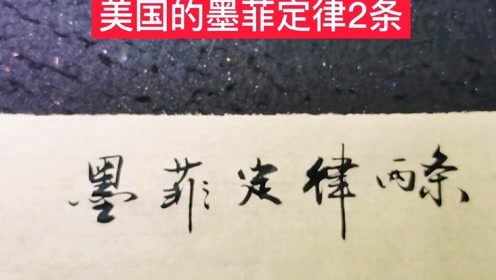 美国的墨菲定律2条
墨菲定律两条